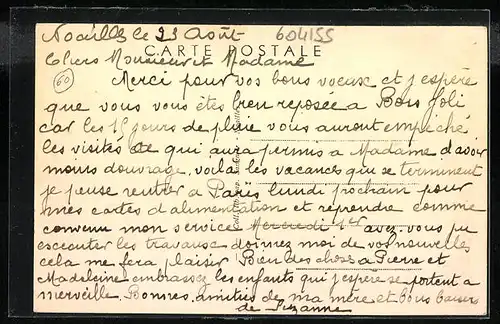 Noailles le 23 Août 604155
Chers Monsieur et Madame
CARTE POSTALE
60
Merci pour vos bons voeux et j'espère
que vous vous êtes bien reposée a Bois Joli
car les 15 jours de pluie vous auront empêché
les visites ce qui aura permis a Madame d'avoir
moins d'ouvrage. voila les vacances qui se terminent
je pense rentrer a Paris lundi prochain pour
mes cartes d'alimentation et reprendre comme
convenu mon service Mercredi 1er avez-vous pu
escouter les travaux donnez moi de vos nouvelles
cela me fera plaisir Bien des choses a Pierre et
Madeleine embrassez les enfants qui j'espère se portent a
merveille. Bonnes amitiés de ma mère et bons baisers
de Suzanne